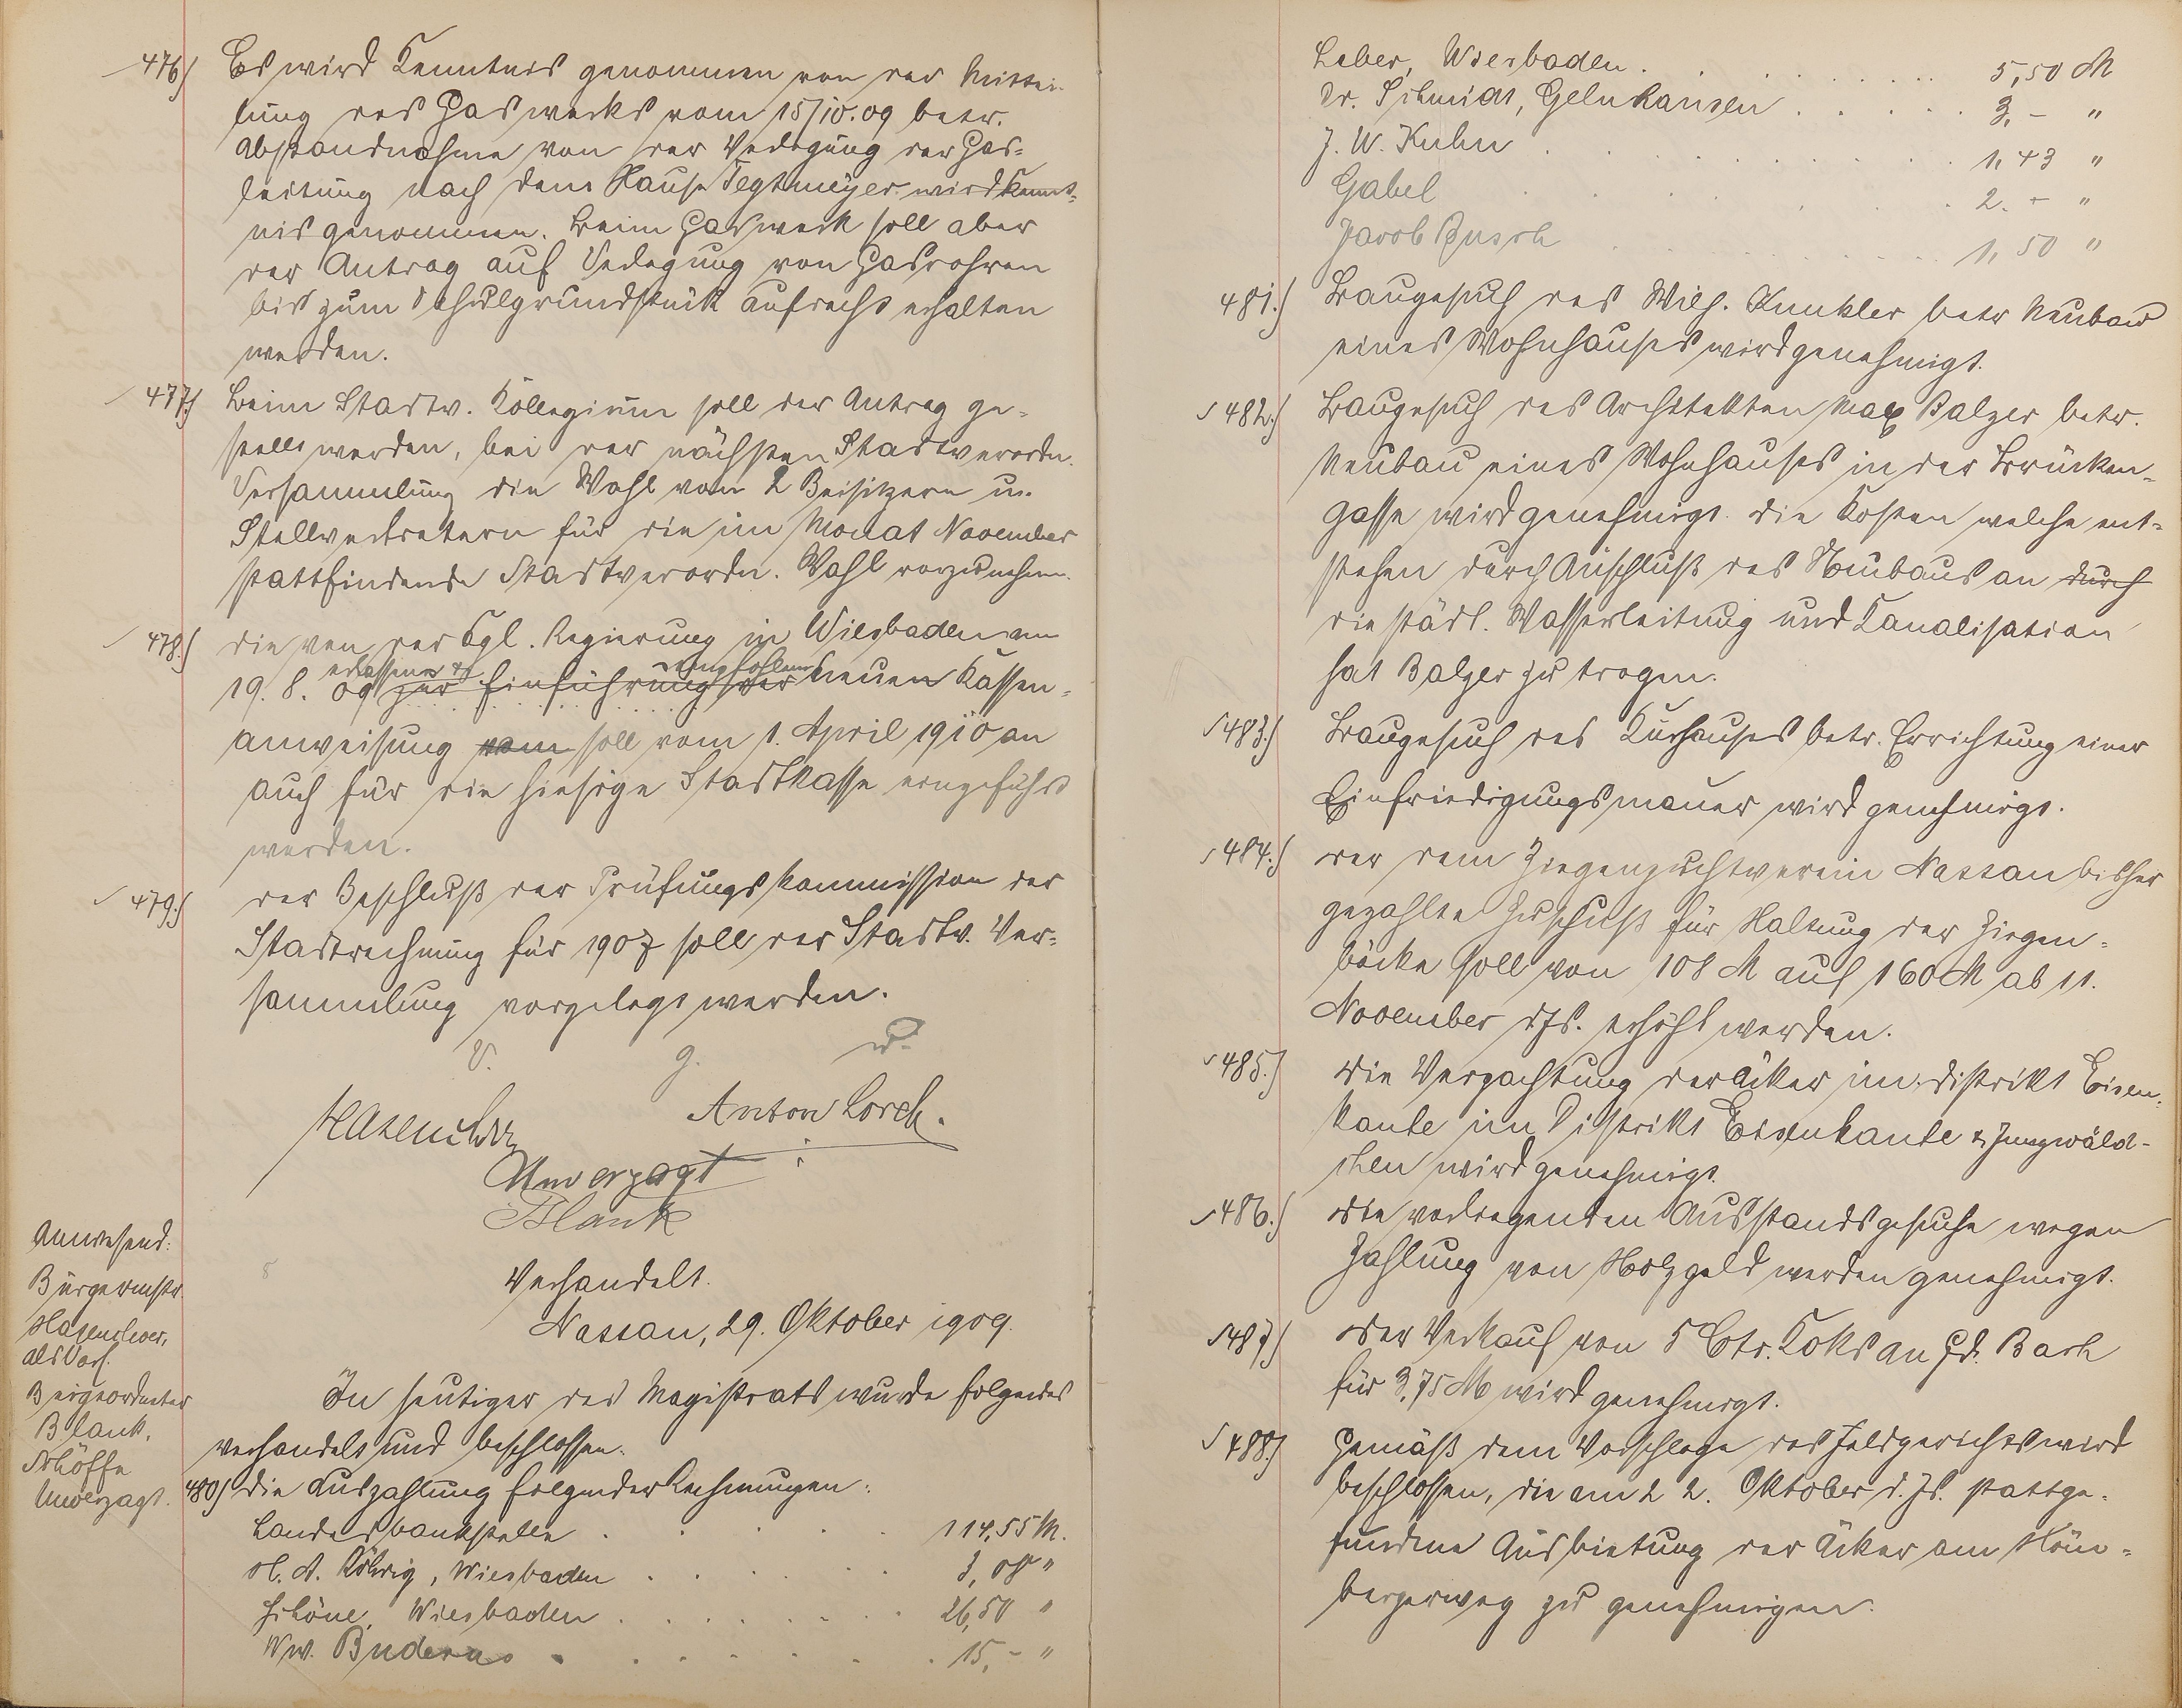 476) Es wird Kenntnis genommen von der Mittei-
lung des Gaswerks vom 15/10.09 betr.
Abstandnahme von der Verlegung der Gas-
leitung nach dem Hause Tegtmeyer wird Kennt-
nis genommen. Beim Gaswerk soll aber
der Antrag auf Verlegung von Gasrohren
bis zum Schulgrundstück aufrecht erhalten
werden.
477.) Beim Stadtv. Kollegium soll der Antrag ge-
stellt werden, bei der nächsten Stadtverordn.
Versammlung die Wahl von 2 Beisitzern u.
Stellvertretern für die im Monat November
stattfindende Stadtverordn. Wahl vorzunehm.
478.) die von der Kgl. Regierung in Wiesbaden am
erlassene & empfohlene
19. 8. 09 zur Einführung der neuen Kassen-
anweisung vom soll vom 1. April 1910 an
auch für die hiesige Stadtkasse eingeführt
werden.
479.) der Beschluß der Prüfungskommission der
Stadtrechnung für 1907 soll der Stadtv. Ver-
sammlung vorgelegt werden.
V. g. u.
Hasenclever
Anton Lorch.
Unverzagt
Blank
Anwesend:
Bürgermstr.
Hasenclever,
als Vors.
Beigeordneter
Blank,
Schöffe
Unverzagt.
Verhandelt.
Nassau, 29. Oktober 1909.
In heutiger des Magistrats wurde folgendes
verhandelt und beschlossen.
480) Die Auszahlung folgender Rechnungen:
Landesbankstelle . . . . 114,55 M.
H. A. Röhrig, Wiesbaden . . . . 3,08 "
Schöne, Wiesbaden . . . . 26,50 "
Ww. Buderus . . . . 15,- "
Leber, Wiesbaden . . . . 5,50 M
Dr. Schmidt, Gelnhausen . . . . 3,- "
J. W. Kuhn . . . . 1,43 "
Gabel . . . . 2.- "
Jacob Busch . . . . 1,50 "
481.) Baugesuch des Wilh. Kunkler betr Neubau
eines Wohnhauses wird genehmigt.
482.) Baugesuch des Architekten Max Balzer betr.
Neubau eines Wohnhauses in der Brücken-
gasse wird genehmigt. die Kosten welche ent-
stehen durch Anschluß des Neubaus an durch
die städt. Wasserleitung und Kanalisation
hat Balzer zu tragen.
483.) Baugesuch des Kurhauses betr. Errichtung einer
Einfriedigungsmauer wird genehmigt.
484.) der dem Ziegenzuchtverein Nassau bisher
gezahlte Zuschuß für Haltung der Ziegen-
böcke soll von 108 M auf 160 M ab 11.
November d Js. erhöht werden.
485.) Die Verpachtung der Äcker im Distrikt Eisen-
kaute im Distrikt Eisenkaute & Jungwäld-
chen wird genehmigt.
486.) Die vorliegenden Ausstandsgesuche wegen
Zahlung von Holzgeld werden genehmigt.
487) Der Verkauf von 5 Ctr. Koks an Gd. Bach
für 3,75 M wird genehmigt.
488) Gemäß dem Vorschlage des Feldgerichts wird
beschlossen, die am 22. Oktober d. Js. stattge-
fundene Ausbietung der Äcker am Höm-
bergerweg zu genehmigen.